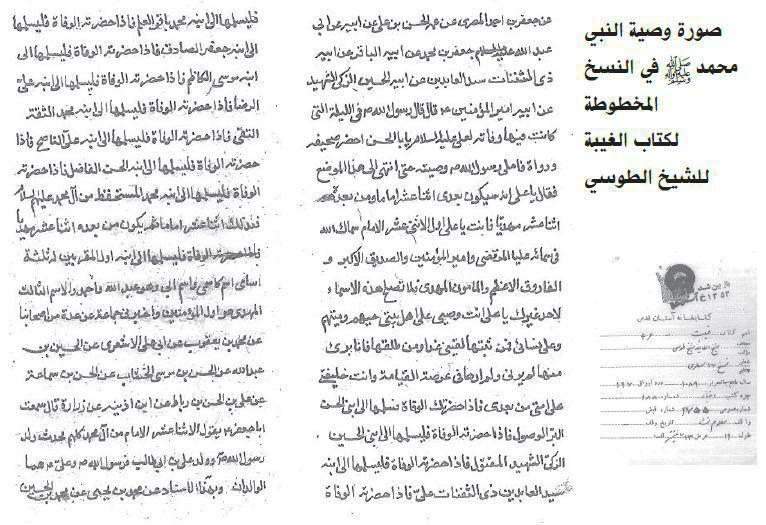 صورة وصية النبي
محمد ﷺ في النسخ
المخطوطة
لكتاب الغيبة
للشيخ الطوسي
عن جعفر بن احمد المصرى عن عمه الحسن بن على عن ابيه عن ابى
عبد الله عليه السلام جعفر بن محمد عن ابيه الباقر عن ابيه
ذى الثفنات سيد العابدين عن ابيه الحسين الزكى الشهيد
عن ابيه امير المؤمنين ع قال قال رسول الله ص فى الليلة التى
كانت فيها وفاته لعلى عليه السلام يا ابا الحسن احضر صحيفه
ودواة فاملى رسول الله ص وصيته حتى انتهى الى هذا الموضع
فقال يا على انه سيكون بعدى اثنا عشر اماما ومن بعدهم
اثنا عشر مهديا فانت يا على اول الاثنى عشر الامام سماك الله
فى سمائه عليا المرتضى وامير المؤمنين والصديق الاكبر و
الفاروق الاعظم والمامون المهدى فلا تصلح هذه الاسماء
لاحد غيرك يا على انت وصيى على اهل بيتى حيهم وميتهم
وعلى نسائى فمن ثبتها لقيتنى غدا ومن طلقتها فانا برئ
منها لم ترنى ولم ارها فى عرصة القيامة وانت خليفتى
على امتى من بعدى فاذا حضرتك الوفاة فسلمها الى ابنى الحسن
البر الوصول فاذا حضرته الوفاة فليسلمها الى ابنى الحسين
الزكى الشهيد المقتول فاذا حضرته الوفاة فليسلمها الى ابنه
سيد العابدين ذى الثفنات على فاذا حضرته الوفاة
فليسلمها الى ابنه محمد باقر العلم فاذا حضرته الوفاة فليسلمها
الى ابنه جعفر الصادق فاذا حضرته الوفاة فليسلمها الى
ابنه موسى الكاظم فاذا حضرته الوفاة فليسلمها الى ابنه على
الرضا فاذا حضرته الوفاة فليسلمها الى ابنه محمد الثقة
التقى فاذا حضرته الوفاة فليسلمها الى ابنه على الناصح فاذا
حضرته الوفاة فليسلمها الى ابنه الحسن الفاضل فاذا حضرته
الوفاة فليسلمها الى ابنه محمد المستحفظ من آل محمد عليهم السلام
فذلك اثنا عشر اماما ثم يكون من بعده اثنا عشر مهديا
فاذا حضرته الوفاة فليسلمها الى ابنه اول المقربين له ثلثة
اسامى اسم كاسمى واسم ابى وهو عبد الله واحمد والاسم الثالث
المهدى هو اول المؤمنين واخبرنى جماعة عن عدة من اصحابنا
عن محمد بن يعقوب عن ابى على الاشعرى عن الحسين بن
عبد الله عن الحسن بن موسى الخشاب عن الحسن بن سماعة
عن على بن الحسن بن رباط عن ابن اذينه عن زرارة قال سمعت
ابا جعفر ع يقول الاثنا عشر الامام من آل محمد كلهم محدث ولد
رسول الله ص وولد على بن ابى طالب فرسول الله ص وعلى ع هما
الوالدان وبهذا الاسناد عن محمد بن يحيى عن محمد بن الحسين
كتابخانه آستان قدس